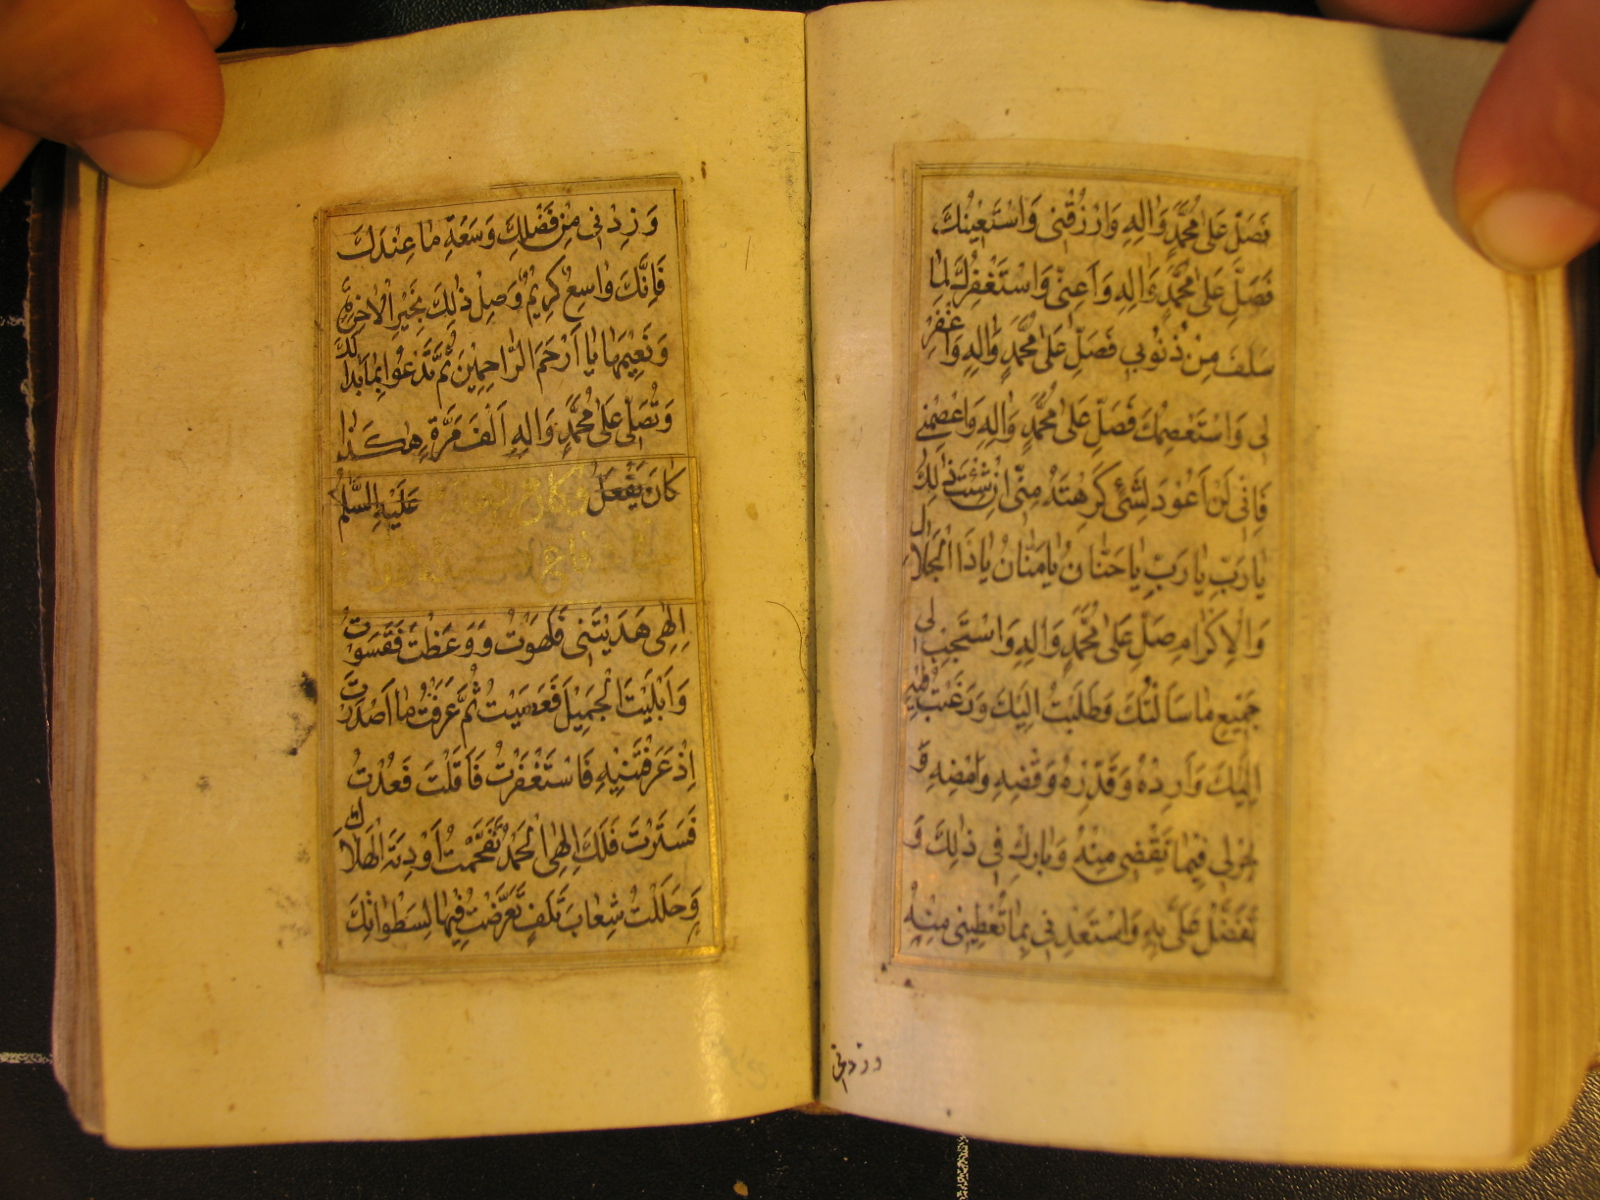 فَصَلِّ عَلىٰ مُحَمَّدٍ وَاٰلِهِ وَارْزُقْنى وَاسْتَعينُكَ
فَصَلِّ عَلىٰ مُحَمَّدٍ وَاٰلِهِ وَاَعِنّى وَاسْتَغْفِرُكَ لِمٰا
سَلَفَ مِنْ ذُنُوبى فَصَلِّ عَلىٰ مُحَمَّدٍ وَاٰلِهِ وَاغْفِرْ
لى وَاسْتَعْصِمُكَ فَصَلِّ عَلىٰ مُحَمَّدٍ وَاٰلِهِ وَاعْصِمْنى
فَاِنّى لَنْ اَعُودَ لِشَئٍ كَرِهْتَهُ مِنّى اِنْ شِئْتَ ذٰلِكَ
يٰا رَبِّ يٰا رَبِّ يٰا حَنّٰانُ يٰا مَنّٰانُ يٰا ذَا الْجَلاٰلِ
وَالْاِكْرٰامِ صَلِّ عَلىٰ مُحَمَّدٍ وَاٰلِهِ وَاسْتَجِبْ لى
جَميعِ مٰا سَاَلْتُكَ وَطَلَبْتُ اِلَيْكَ وَرَغِبْتُ فيهِ
اِلَيْكَ وَاَرِدْهُ وَقَدِّرْهُ وَقْضِهِ وَاَمْضِهِ وَ
خِرْلى فيمٰا تَقْضى مِنْهُ وَبٰارِكْ لى فى ذٰلِكَ وَ
تَفَضَّلْ عَلَىَّ بِهِ وَاسْتَعِدْنى بِمٰا تُعْطينى مِنْهُ
وزدنى
وَزِدْنى مِنْ فَضْلِكَ وَسَعَةِ مٰا عِنْدَكَ
فَاِنَّكَ وٰاسِعٌ كَريمٌ وَصِلْ ذٰلِكَ بِخَيْرِ الْاٰخِرَةِ
وَنَعيمِهٰا يٰا اَرْحَمَ الرّٰاحِمينَ ثُمَّ تَدْعُوا بِمٰا بَدٰا لَكَ
وَتُصَلّى عَلىٰ مُحَمَّدٍ وَاٰلِهِ اَلْفَ مَرَّةٍ هٰكَذٰا
كٰانَ يَفْعَلُ عَلَيْهِ السَّلٰمُ
اِلٰهى هَدَيْتَنى فَلَهَوْتُ وَوَعَظْتَ فَقَسَوْتُ
وَاَبْلَيْتَ الْجَميلَ فَعَصَيْتُ ثُمَّ عَرَفْتُ مٰا اَصْدَرْتَ
اِذْ عَرَّفْتَنيهِ فَاسْتَغْفَرْتُ فَاَقَلْتَ فَعُدْتُ
فَسَتَرْتَ فَلَكَ اِلٰهِى الْحَمْدُ تَقَحَّمْتُ اَوْدِيَةَ الْهَلاٰكِ
وَحَلَلْتُ شِعٰابَ تَلَفٍ تَعَرَّضْتُ فيهٰا لِسَطَوٰاتِكَ